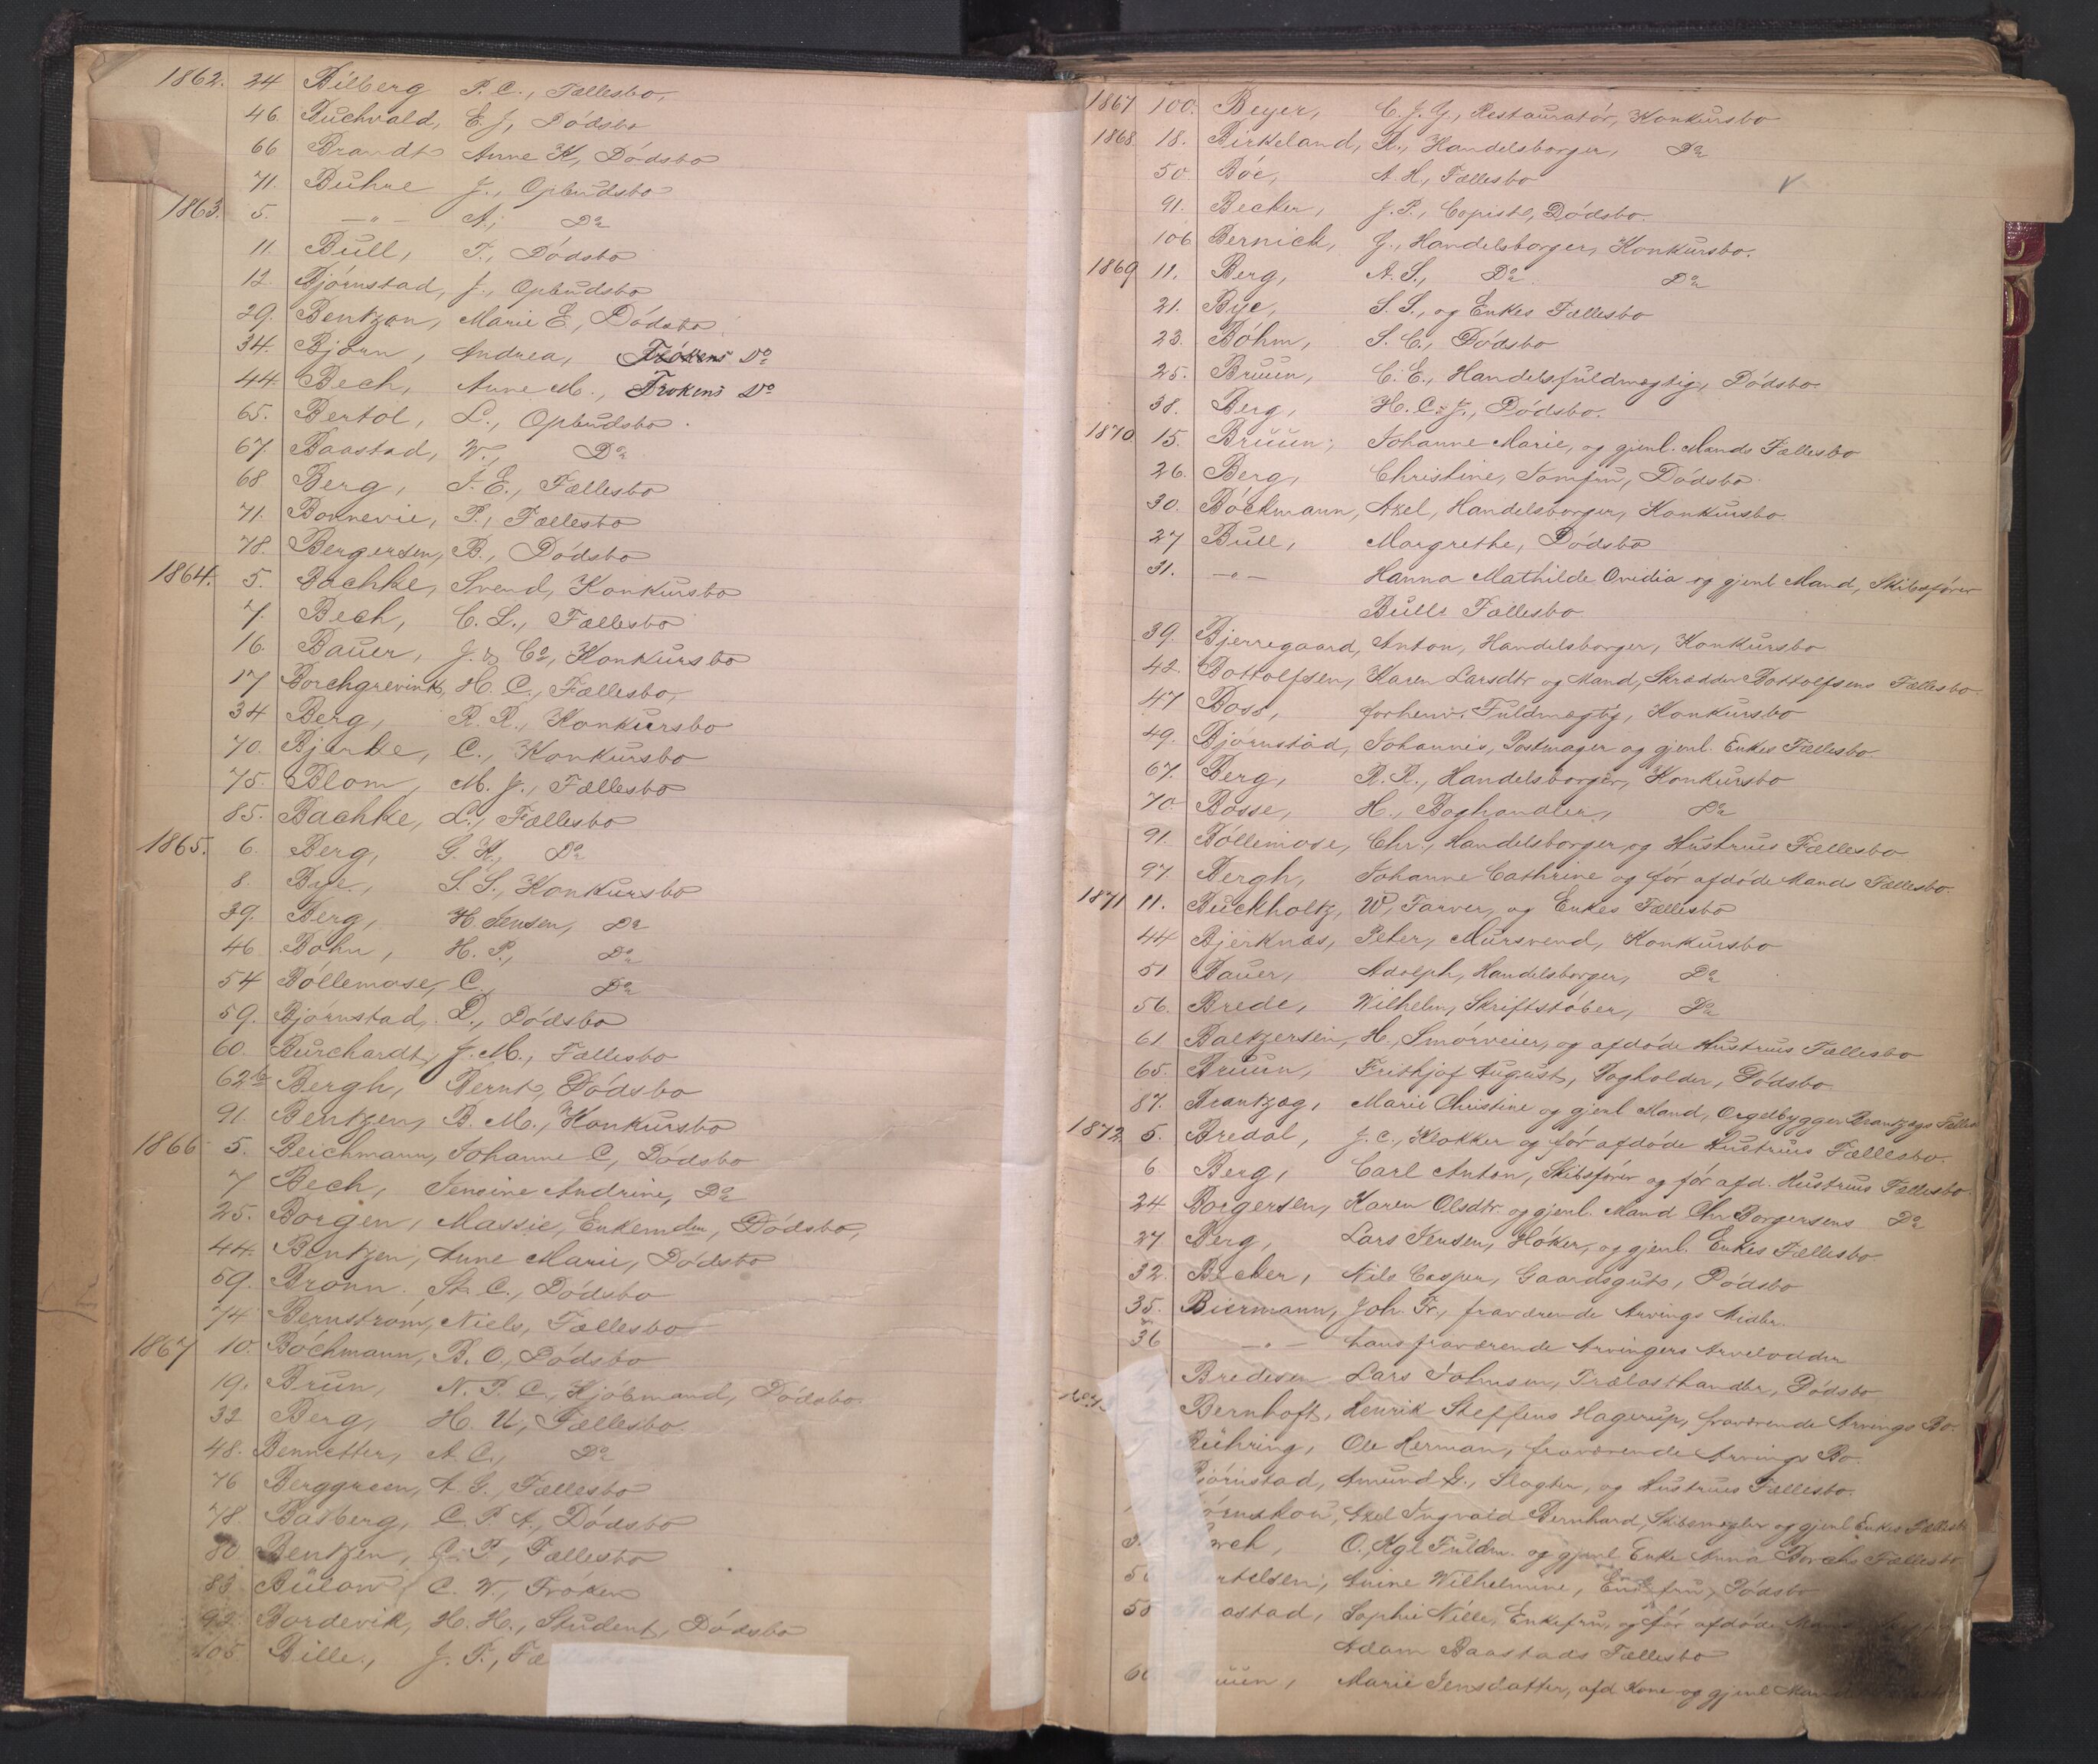 1862. 24 Bilberg P. C., Fællesbo,
46. Buchvald, E. J, Dödsbo
66 Brandt Anne K, Dödsbo
71. Buhre J., Opbudsbo
1863. 5. — " — A., Do
11. Bull, T., Dödsbo
12. Bjørnstad, J., Opbudsbo
29. Bentzon, Marie E, Dödsbo
34. Bjørn, Andrea, Frökens Do
44. Bech, Anne M., Frökens Do
65. Bertol, L., Opbudsbo.
67. Baastad, W., Do
68 Berg, J. E., Fællesbo
71. Bonnevie, P., Fællesbo
78. Bergersen, B., Dödsbo
1864. 5. Bachke, Svend, Konkursbo
7. Bech, C. L., Fællesbo
16. Bauer, J. & Co, Konkursbo
17 Borchgrevink, H. C., Fællesbo,
34 Berg, R. R., Konkursbo
70. Bjerke, C., Konkursbo
75. Blom, M. J., Fællesbo
85. Bachke, L., Fællesbo
1865. 6. Berg, G. K., Do
8. Bye, S. S., Konkursbo
39. Berg, H. Jensen, Do
46. Bohn, H. P., Do
54 Böllemose, C., Do
59. Bjørnstad, D., Dödsbo
60. Burchardt, J. M., Fællesbo
62b Bergh, Bernt, Dödsbo
91. Bentzen, B. M., Konkursbo
1866 5. Beichmann, Johanne C, Dödsbo
7 Bech, Jensine Andrine, Do
25. Borgen, Massie, Enkemdm, Dödsbo,
44. Bentzen, Anne Marie, Dödsbo
59. Bronn. St. C., Dödsbo
74 Bernström, Niels, Fællesbo
1867 10. Böchmann, B. O., Dödsbo
19. Brun, N. P. C., Kjöbmand, Dödsbo.
32 Berg, H. U, Fællesbo.
48. Bennetter, A. C., Do
76 Berggreen, A. G., Fællesbo
78. Basberg, C. P. A., Dödsbo
80. Bentzen, C. P., Fællesbo
83 Bülow C. W., Fröken
92. Bordevik, H. H., Student, Dödsbo
105 Bille, J. F., Fæ
1867 100. Beyer, C. J. G., Restauratör, Konkursbo
1868 18. Birkeland, R., Handelsborger, Do
50. Böe, A. H., Fællesbo
91. Becker, J. P., Copist, Dödsbo.
106 Bernick, J., Handelsborger, Konkursbo.
1869 11. Berg, A. S., Do Do
21. Bye, S. S., og Enkes Fællesbo
23. Böhm, S. C., Dödsbo
25. Bruun, C. E., Handelsfuldmægtig, Dödsbo
38. Berg, H. C. J., Dödsbo.
1870 15. Bruun, Johanne Marie, og gjenl. Mands Fællesbo
26. Berg, Christine, Jomfru, Dödsbo
30. Böckmann, Axel, Handelsborger, Konkursbo
27 Bull, Margrethe, Dödsbo
31. — " — Hanna Mathilde Ovidia og gjenl Mand, Skibsförer
Bulls Fællesbo
39. Bjerregaard, Anton, Handelsborger, Konkursbo
42. Bottolfsen, Karen Larsdtr og Mand, Skrædder Bottolfsens Fællesbo.
47 Boss, forhenv. Fuldmægtig, Konkursbo
49. Bjørnstad, Johannes, Postmager og gjenl. Enkes Fællesbo
67. Berg, R. R., Handelsborger, Konkursbo
70. Bosse, H., Boghandler, Do
91. Böllemose, Chr., Handelsborger og Hustrues Fællesbo
97. Bergh, Johanne Cathrine og för afdöde Mands Fællesbo.
1871 11. Buckholtz, W, Farver, og Enkes Fællesbo
44 Bjerknæs, Peter, Mursvend, Konkursbo
51 Bauer, Adolph, Handelsborger, Do
56. Brede, Wilhelm, Skriftstöber, Do
61 Baltzersen, H., Smörveier, og afdöde Hustrues Fællesbo
65. Bruun, Frithjof August, Bogholder, Dödsbo
87. Brantzæg, Marie Christine og gjenl Mand, Orgelbygger Brantzægs Fælles
1872 5. Bredal, J. C., Klokker og för afdöde Hustrues Fællesbo.
6. Berg, Carl Anton, Skibsförer og för afd. Hustrues Fællesbo.
24 Borgersen, Karen Olsdtr og gjenl. Mand Chr Borgersens Do
27 Berg, Lars Jensen, Höker, og gjenl. Enkes Fællesbo
32. Becker, Nils Casper, Gaardsguts, Dödsbo
35. Biermann, Joh. Fr., fraværende Arvings Midler.
36 — " — Hans fraværende Arvingers Arvelodder
Bredesen Lars Johnsen, Trælasthandler, Dödsbo
Bernhoft, Henrik Steffens Hagerup, fraværende Arvings Bo.
Bühring, Ole Herman, fraværende Arvings Bo.
Bjørnstad, Amund G., Slagter, og Hustrues Fællesbo.
Axel Ingvald Bernhard, Skibsmægler og gjenl Enkes Fællesb
orch, O., Kgl Fuldm. og gjenl Enke Anna Borchs Fællesbo
ertelsen, Anine Wilhelmine, Enkefru, Dödsbo
astad, Sophie Nille, Enkefru, og för afdöde
Adam Baastads Fællesbo
uun, Marie Jensdatter, afd Kone og gjenl Mand